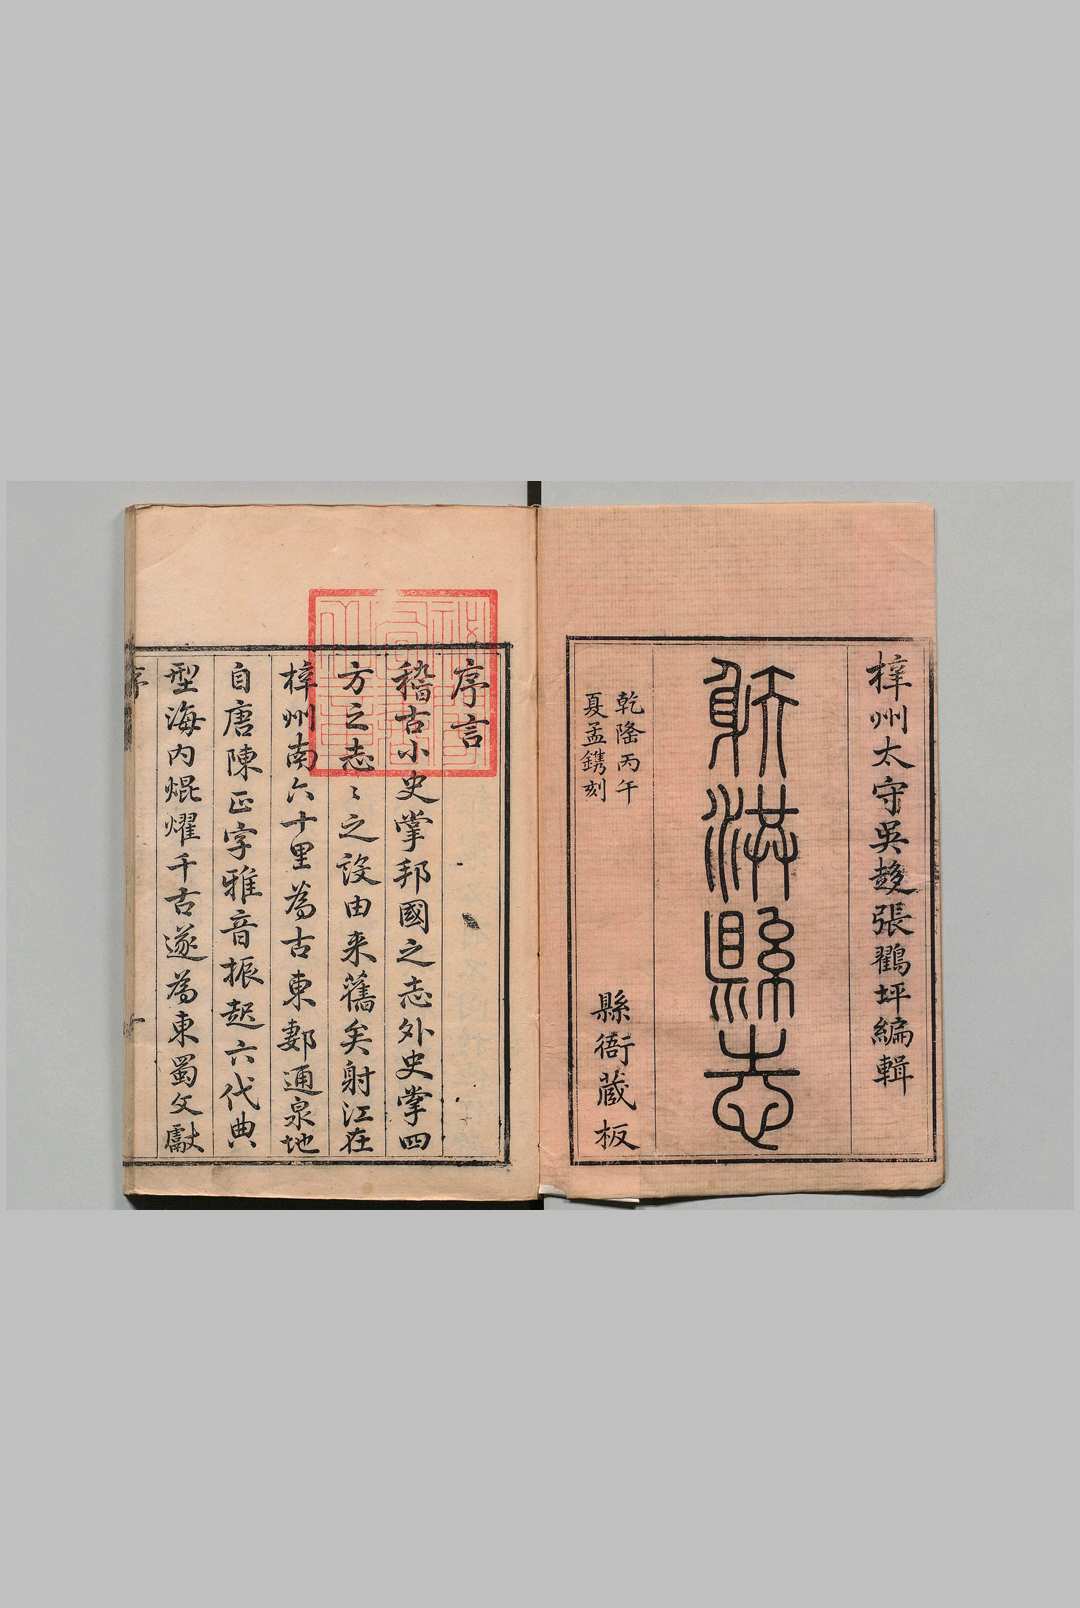 梓州太守吳趲張鸐坪編輯
射洪縣志
乾隆丙午
夏孟鐫刻
縣衙藏板
序言
稽古小史掌邦國之志外史掌四
方之志〻之設由来舊矣射江在
梓州南六十里為古東郪通泉地
自唐陳正字雅音振起六代典
型海内焜燿千古遂為東蜀文獻
序